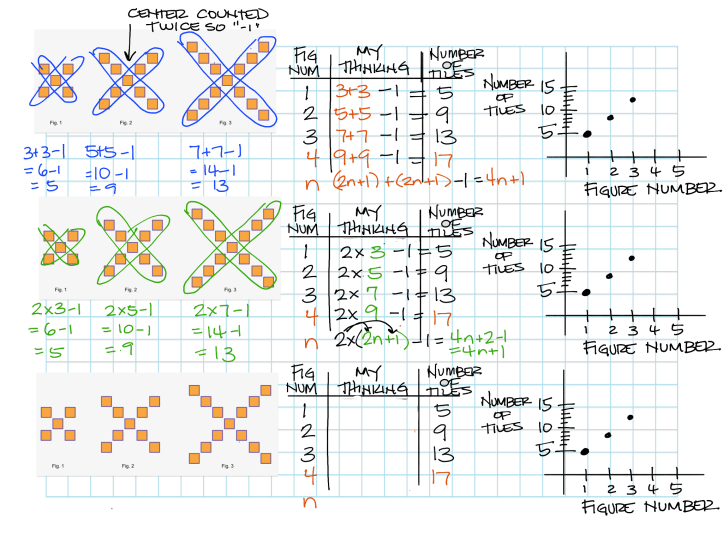 CENTER COUNTED
TWICE SO "-1"
Fig. 1
Fig. 2
Fig. 3
3+3-1
=6-1
=5
5+5-1
=10-1
=9
7+7-1
=14-1
=13
FIG NUM
MY THINKING
NUMBER OF TILES
1 3+3 -1 = 5
2 5+5 -1 = 9
3 7+7 -1 = 13
4 9+9 -1 = 17
n (2n+1)+(2n+1)-1=4n+1
NUMBER OF TILES
15
10
5
1 2 3 4 5
FIGURE NUMBER
Fig. 1
Fig. 2
Fig. 3
2x3-1
=6-1
=5
2x5-1
=10-1
=9
2x7-1
=14-1
=13
FIG NUM
MY THINKING
NUMBER OF TILES
1 2x 3 -1 = 5
2 2x 5 -1 = 9
3 2x 7 -1 = 13
4 2x 9 -1 = 17
n 2x(2n+1)-1=4n+2-1
=4n+1
NUMBER OF TILES
15
10
5
1 2 3 4 5
FIGURE NUMBER
Fig. 1
Fig. 2
Fig. 3
FIG NUM
MY THINKING
NUMBER OF TILES
1 5
2 9
3 13
4 17
n
NUMBER OF TILES
15
10
5
1 2 3 4 5
FIGURE NUMBER